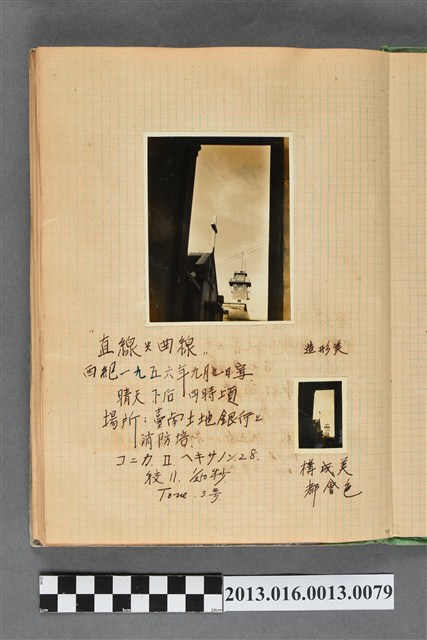 "直線と曲線"
西紀一九五六年九月七日寫.
晴天 下后 四時頃
場所：臺南土地銀行と
消防塔.
コニカ II ヘキサノン 2.8.
絞 11.
Tone. 3号
造形美
構成美
都會色
2013.016.0013.0079